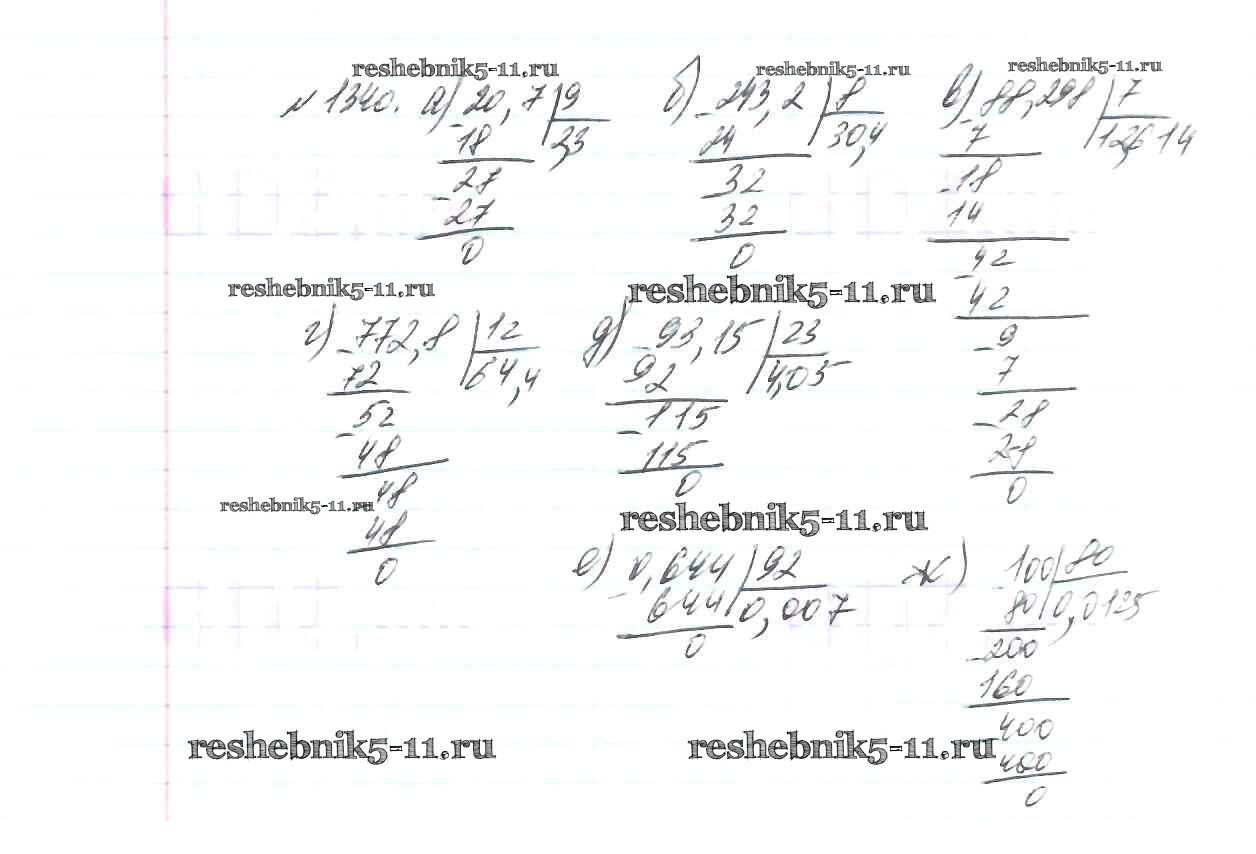 reshebnik5-11.ru reshebnik5-11.ru reshebnik5-11.ru
№ 1340. а) 20,7 | 9 б) 243,2 | 8 в) 88,298 | 7
18 2,3 24 30,4 7 12,614
27 32 18
27 32 14
0 0 42
reshebnik5-11.ru reshebnik5-11.ru 42
г) 772,8 | 12 д) 93,15 | 23 9
72 64,4 92 4,05 7
52 115 28
48 115 28
48 0 0
reshebnik5-11.ru reshebnik5-11.ru
48
0
е) 0,644 | 92 ж) 100 | 80
644 0,007 80 0,0125
0 200
160
400
reshebnik5-11.ru reshebnik5-11.ru
400
0